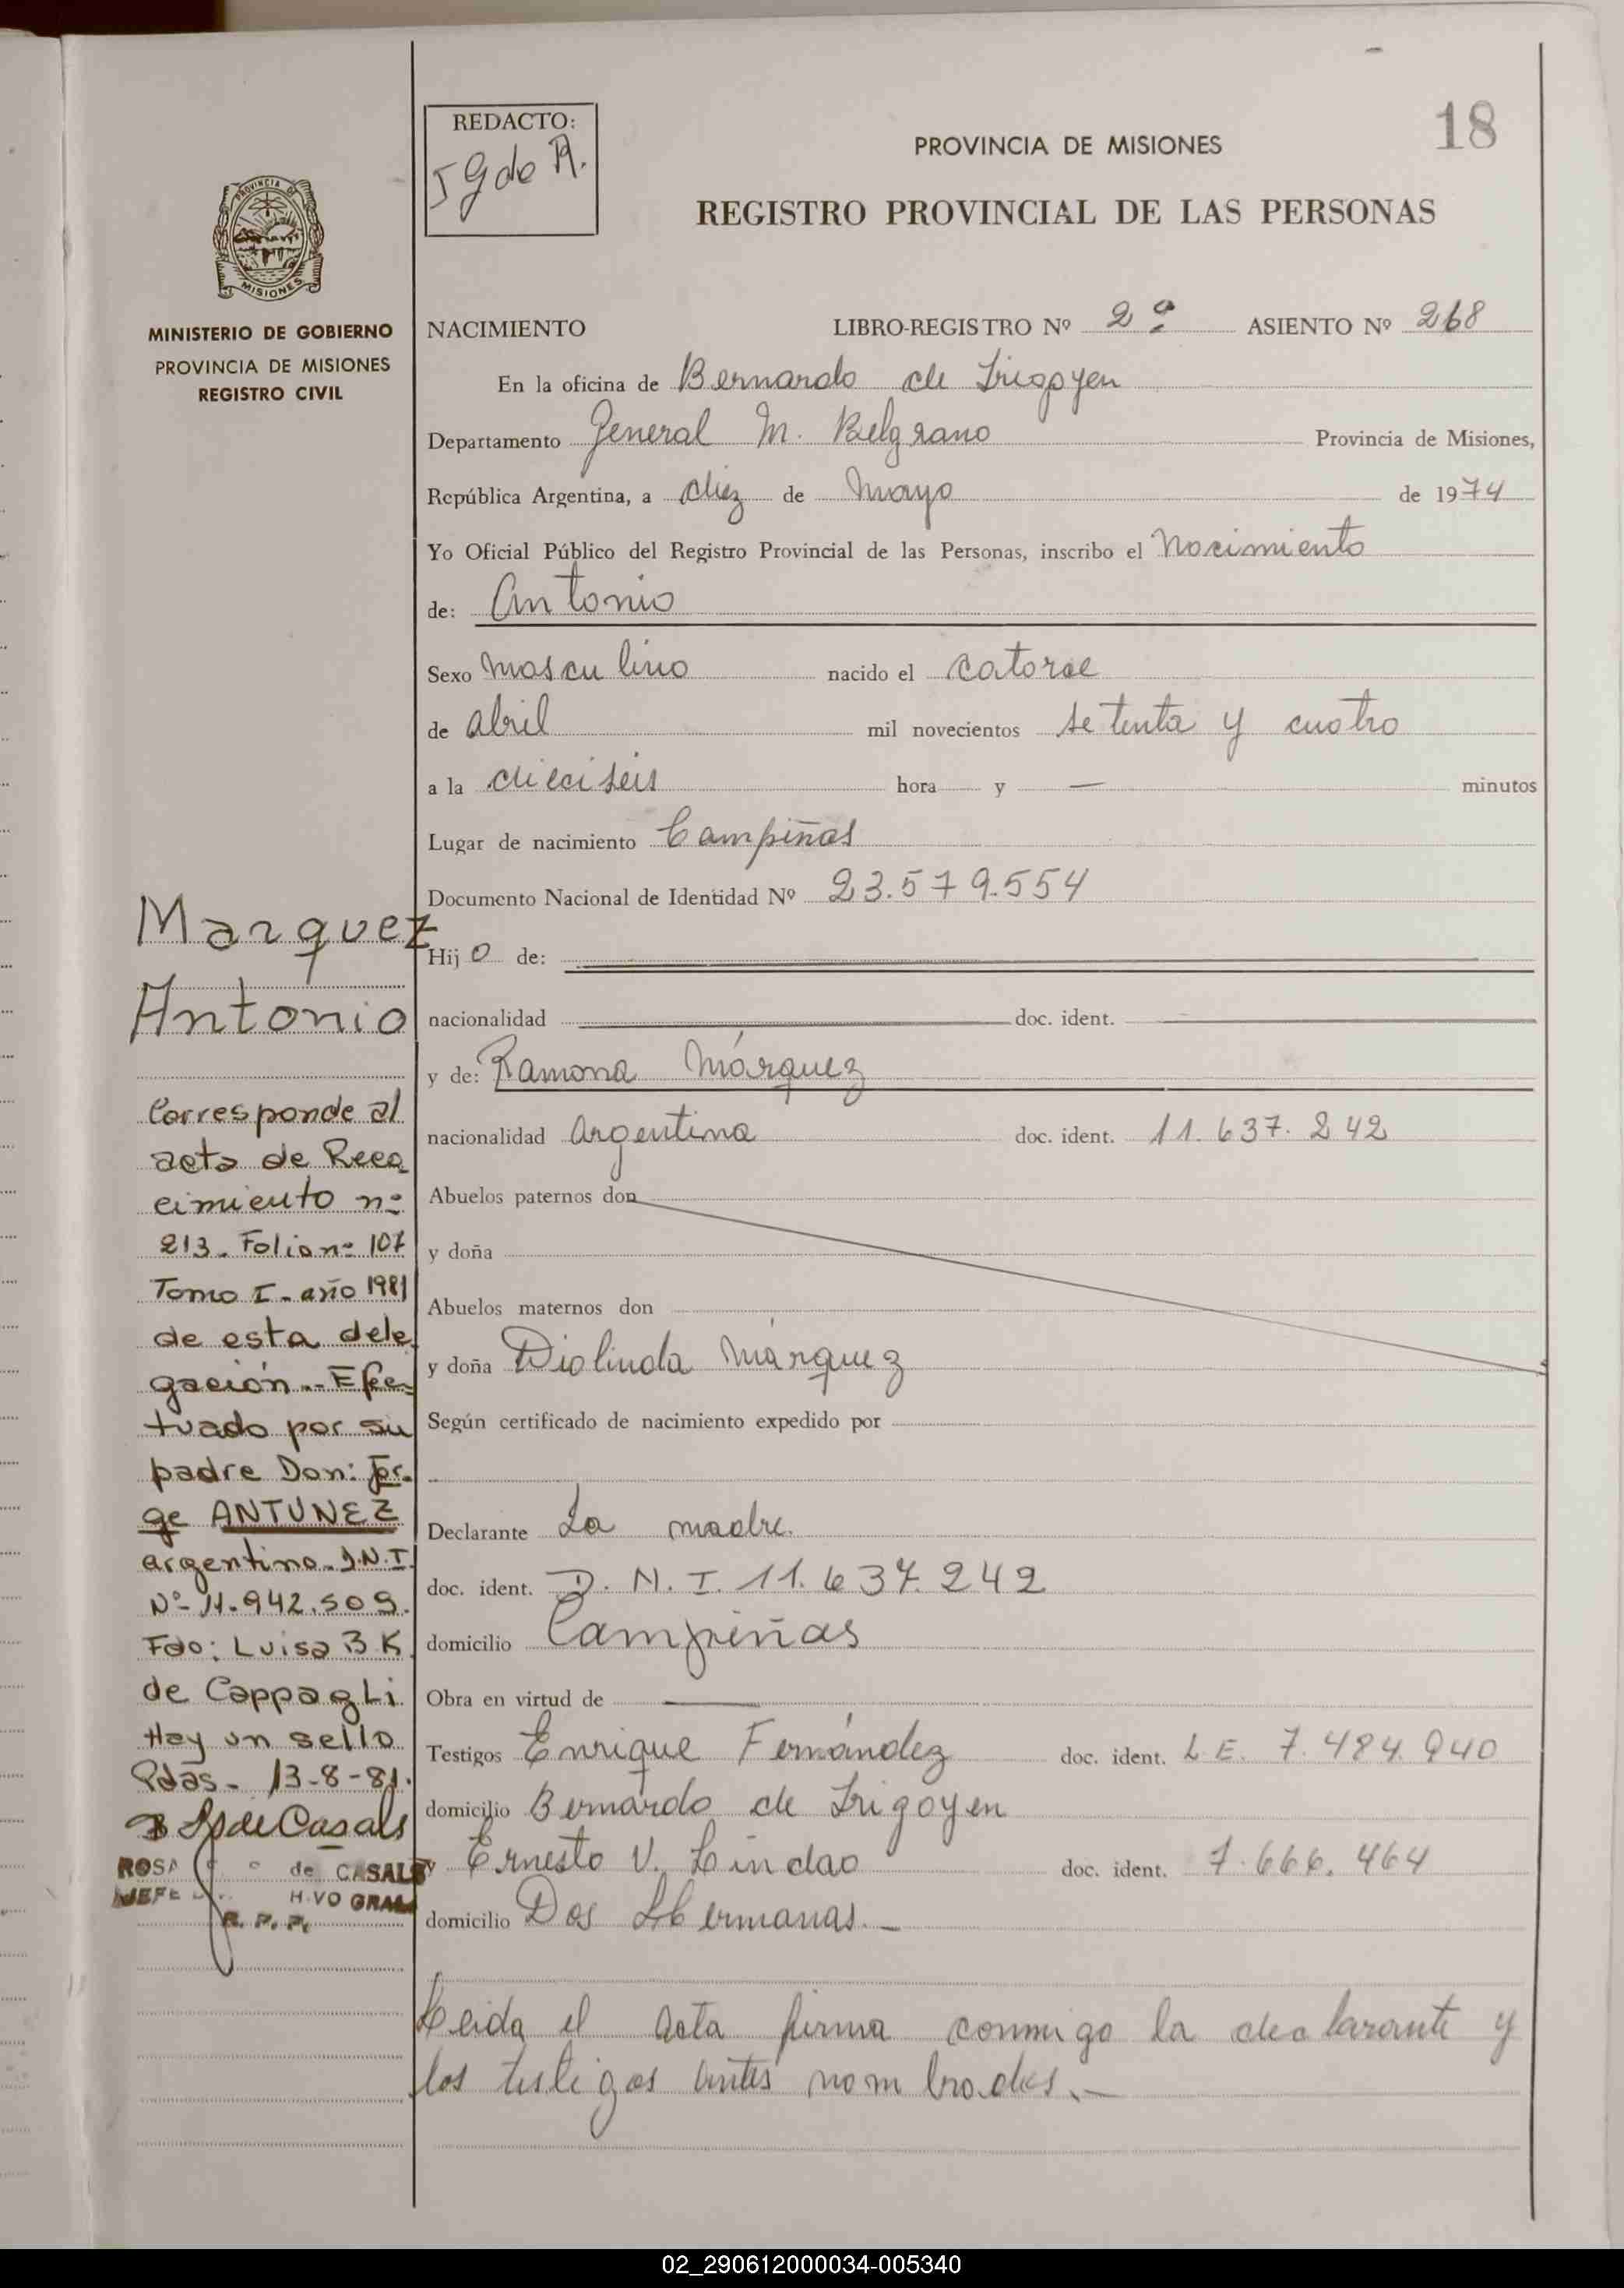 18
REDACTO:
PROVINCIA DE MISIONES
REGISTRO PROVINCIAL DE LAS PERSONAS
PROVINCIA DE
MISIONES
MINISTERIO DE GOBIERNO
PROVINCIA DE MISIONES
REGISTRO CIVIL
NACIMIENTO LIBRO-REGISTRO Nº 2º ASIENTO Nº 268
En la oficina de Bernardo de Irigoyen
Departamento General M. Belgrano Provincia de Misiones,
República Argentina, a diez de Mayo de 1974
Yo Oficial Público del Registro Provincial de las Personas, inscribo el Nacimiento
de: Antonio
Sexo Masculino nacido el catorce
de abril mil novecientos setenta y cuatro
a la dieciseis hora y — minutos
Lugar de nacimiento Campiñas
Documento Nacional de Identidad Nº 23.579.554
Hijo de:
nacionalidad doc. ident.
y de: Ramona Márquez
nacionalidad Argentina doc. ident. 11.637.242
Abuelos paternos don
y doña
Abuelos maternos don
y doña Diolinda Márquez
Según certificado de nacimiento expedido por
Declarante La madre.
doc. ident. D.N.I. 11.637.242
domicilio Campiñas
Obra en virtud de —
Testigos Enrique Fernández doc. ident. L.E. 7.484.940
domicilio Bernardo de Irigoyen
y Ernesto V. Lindao doc. ident. 7.666.464
domicilio Dos Hermanas.—
Leida el acta firma conmigo la declarante y
los testigos antes nombrados.—
Marquez
Antonio
Corresponde al
acta de Reco
cimiento nº
213. Folio nº 107
Tomo I - año 1981
de esta dele
gación.- Efec
tuado por su
padre Don: Jor
ge ANTUNEZ
argentino. D.N.I.
Nº 11.942.509.
Fdo: Luisa B K
de Cappagli.
Hay un sello
Pdas. 13-8-81.
ROSA de CASALS
JEFE H.VO GRAL
R. P. P.
02_290612000034-005340